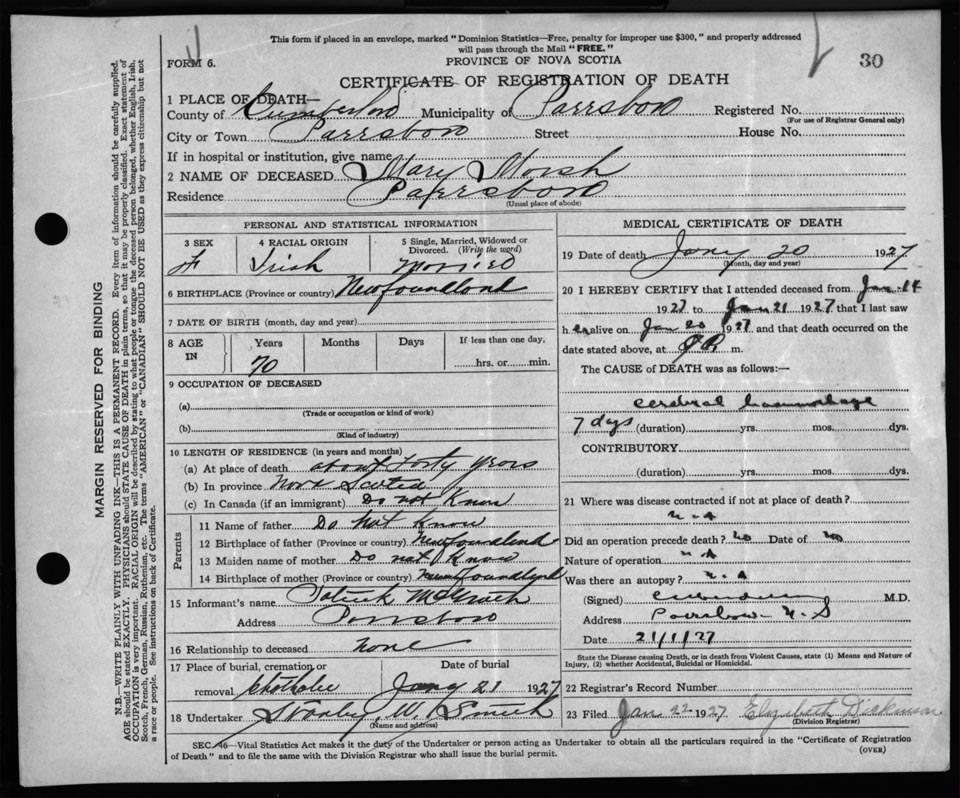 This form if placed in an envelope, marked "Dominion Statistics—Free, penalty for improper use $300," and properly addressed
will pass through the Mail "FREE."
FORM 6.
PROVINCE OF NOVA SCOTIA
30
CERTIFICATE OF REGISTRATION OF DEATH
1 PLACE OF DEATH—
County of Cumberland Municipality of Parrsboro Registered No.
(For use of Registrar General only)
City or Town Parrsboro Street House No.
If in hospital or institution, give name
2 NAME OF DECEASED Mary Marsh
Residence Parrsboro
(Usual place of abode)
PERSONAL AND STATISTICAL INFORMATION
3 SEX 4 RACIAL ORIGIN 5 Single, Married, Widowed or
Divorced. (Write the word)
F Irish Married
6 BIRTHPLACE (Province or country) Newfoundland
7 DATE OF BIRTH (month, day and year)
8 AGE IN Years Months Days If less than one day,
70 hrs. or min.
9 OCCUPATION OF DECEASED
(a)
(Trade or occupation or kind of work)
(b)
(Kind of industry)
10 LENGTH OF RESIDENCE (in years and months)
(a) At place of death about Forty years
(b) In province Nova Scotia
(c) In Canada (if an immigrant) Do not Know
Parents
11 Name of father Do Not Know
12 Birthplace of father (Province or country) Newfoundland
13 Maiden name of mother Do not Know
14 Birthplace of mother (Province or country) Newfoundland
15 Informant's name Patrick
Address Parrsboro
16 Relationship to deceased none
17 Place of burial, cremation or Date of burial
removal Jany 21 1927
18 Undertaker W. Smith
(Name and address)
MEDICAL CERTIFICATE OF DEATH
19 Date of death Jany 20 1927
(Month, day and year)
20 I HEREBY CERTIFY that I attended deceased from Jan 14
1927 to Jan 21 1927 that I last saw
h er alive on Jan 20 1927 and that death occurred on
date stated above, at m.
The CAUSE of DEATH was as follows:—
cerebral haemorhage
7 dys (duration) yrs. mos. dys.
CONTRIBUTORY
(duration) yrs. mos. dys.
21 Where was disease contracted if not at place of death?
N.A
Did an operation precede death? No Date of No
Nature of operation N A
Was there an autopsy? N.A
(Signed) M.D.
Address Parrsboro N.S
Date 21/1/27
State the Disease causing Death, or in death from Violent Causes, state (1) Means and Nature of
Injury, (2) whether Accidental, Suicidal or Homicidal.
22 Registrar's Record Number
23 Filed Jan 22 1927 Elizabeth Dickinson
(Division Registrar)
SEC. 46—Vital Statistics Act makes it the duty of the Undertaker or person acting as Undertaker to obtain all the particulars required in the "Certificate of Registration
of Death" and to file the same with the Division Registrar who shall issue the burial permit.
(OVER)
MARGIN RESERVED FOR BINDING
N.B.—WRITE PLAINLY, WITH UNFADING INK—THIS IS A PERMANENT RECORD. Every item of information should be carefully supplied.
AGE should be stated EXACTLY. PHYSICIANS should STATE CAUSE OF DEATH in plain terms, so that it may be properly classified. Exact statement of
OCCUPATION is very important. RACIAL ORIGIN will be described by stating to what people or tongue the deceased person belonged, whether English, Irish,
Scotch, French, German, Russian, Ruthenian, etc. The terms "AMERICAN" or "CANADIAN" SHOULD NOT BE USED as they express citizenship but not
a race or people. See instructions on back of Certificate.